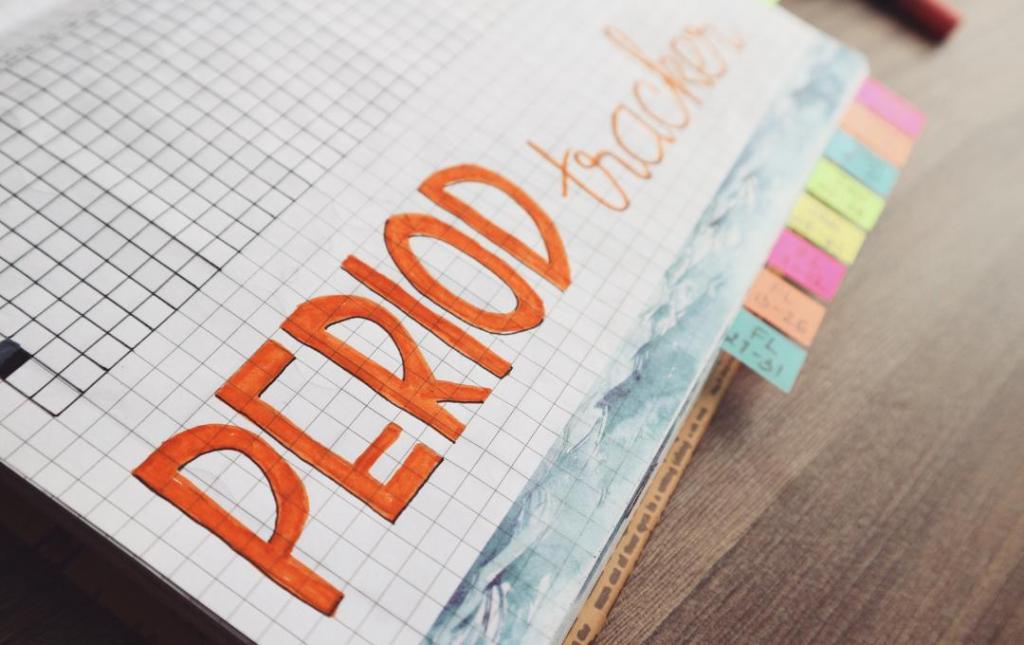 PERIOD tracker
FL
13-26
FL
27-31